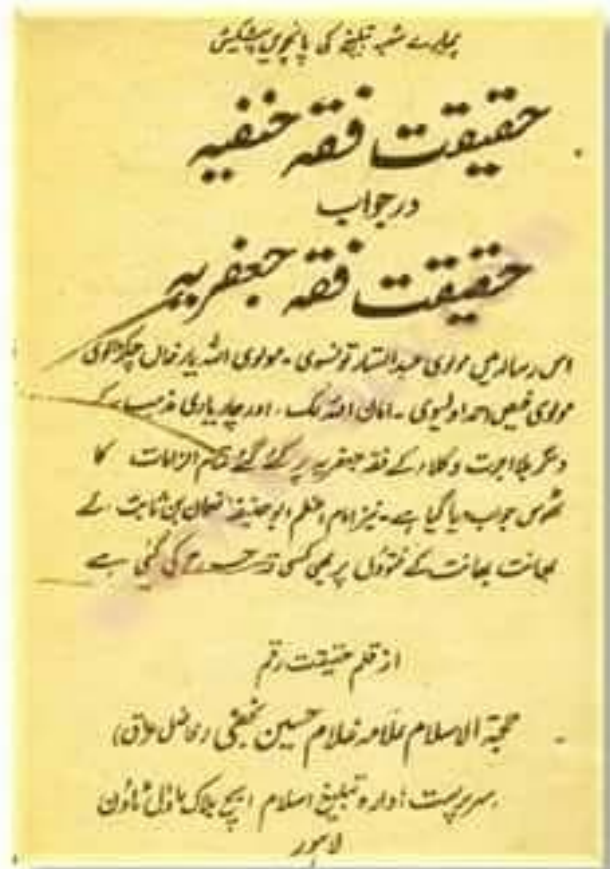 ہمارے شعبہ تبلیغ کی پانچویں پیشکش
حقیقت فقہ حنفیہ
در جواب
حقیقت فقہ جعفریہ
اس رسالہ میں مولوی عبدالستار تونسوی - مولوی اللہ یار خاں چکڑالوی
مولوی فیض احمد اویسی - امان اللہ لک، اور چار یاری مذہب کے
دیگر بلا اجرت وکلاء کے فقہ جعفریہ پر کئے گئے تمام الزامات کا
ٹھوس جواب دیا گیا ہے - نیز امام اعظم ابو حنیفہ نعمان بن ثابت کے
بھانت بھانت کے فتوؤں پر بھی کسی قدر جرح کی گئی ہے
از قلم حقیقت رقم
حجۃ الاسلام علامہ غلام حسین نجفی (فاضل عراق)
سرپرست ادارہ تبلیغ اسلام ایچ بلاک ماڈل ٹاؤن
لاہور